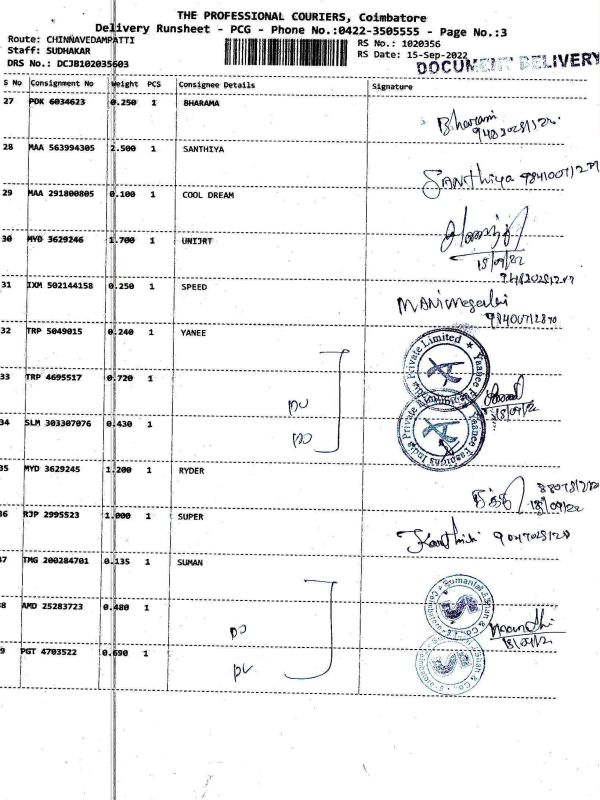 THE PROFESSIONAL COURIERS, Coimbatore
Delivery Runsheet - PCG - Phone No.:0422-3505555 - Page No.:3
Route: CHINNAVEDAMPATTI
RS No.: 1020356
Staff: SUDHAKAR
RS Date: 15-Sep-2022
DRS No.: DCJB102035603
DOCUMENT DELIVERY
S No Consignment No Weight PCS Consignee Details Signature
27 PDK 6034623 0.250 1 BHARAMA
Bharani
28 MAA 563994305 2.500 1 SANTHIYA
SANthiya
29 MAA 291800805 0.100 1 COOL DREAM
30 MYD 3629246 1.700 1 UNIJRT
15/09/22
31 IXM 502144158 0.250 1 SPEED
32 TRP 5049015 0.240 1 YANEE
Private Limited
33 TRP 4695517 0.720 1
DO
15/09/22
34 SLM 303307076 0.430 1
DO
Yaanee Fashions India Private
35 MYD 3629245 1.200 1 RYDER
15/09/22
36 RJP 2995523 1.000 1 SUPER
37 TMG 200284701 0.135 1 SUMAN
38 AMD 25283723 0.480 1
DO
Sumanlal J Shah & Co.
39 PGT 4703522 0.690 1